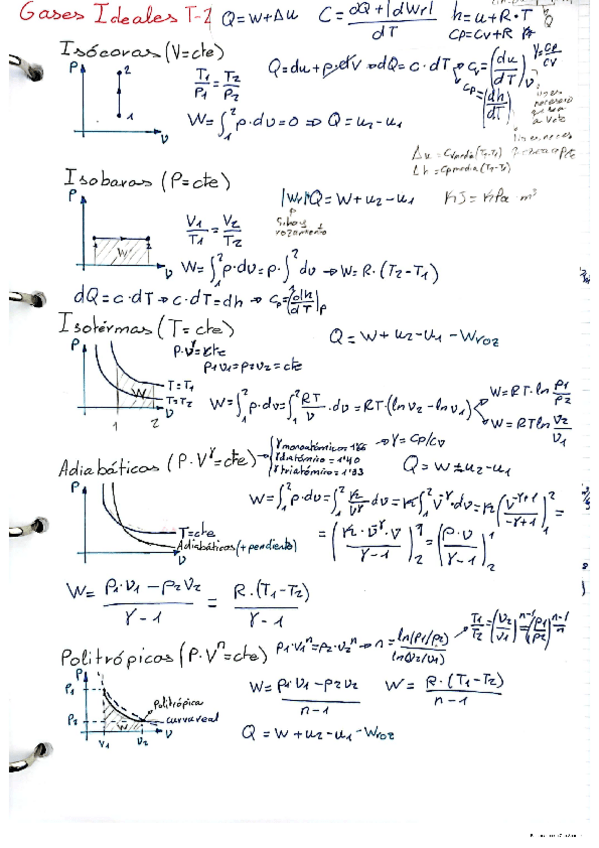 Gases Ideales T-1 Q=W+Δu C = dQ+|dWr| / dT h=u+R·T
Cp=Cv+R
Isócoras (V=cte)
P 2 1 V
T1/P1 = T2/P2
Q=du+p·dV → dQ=c·dT → cv=(du/dT)v γ=cp/cv
cp=(dh/dT)
W=∫₁² p·dv=0 ⇒ Q=u2-u1
Δu=Cvmedia(T2-T1)
Δh=Cpmedia(T2-T1)
Isobaras (P=cte)
P W V
V1/T1 = V2/T2
|Wr| Q=W+u2-u1 KJ=KPa m³
Si hay rozamiento
W=∫₁² p·dv=p·∫₁² dv → W=R·(T2-T1)
dQ=c·dT → c·dT=dh → cp=(dh/dT)p
Isotérmas (T=cte)
Q=W+u2-u1-Wroz
p1v1=p2v2=cte
P W T=T1 T=T2 1 2 V
W=∫₁² p·dv=∫₁² RT/v ·dv=RT·(ln v2-ln v1)
W=RT·ln p1/p2
W=RT ln v2/v1
Adiabáticas (P·V^γ=cte)
γ monoatómicos=1'66 → γ=Cp/Cv
γ diatómico=1'40
γ triatómico=1'33
Q=W+u2-u1
W=∫₁² p·dv=∫₁² k/v^γ dv=k∫₁² v^-γ·dv=k(v^-γ+1 / -γ+1)₁² =
P T=cte Adiabáticas (+pendiente) V
=(k·v^-γ·v / γ-1)₂¹=(p·v / γ-1)₂¹
W= p1·v1-p2v2 / γ-1 = R·(T1-T2) / γ-1
Politrópicas (P·V^n=cte) p1·v1^n=p2·v2^n → n= ln(p1/p2) / ln(v2/v1) → T1/T2=(v2/v1)^n-1=(p1/p2)^n-1/n
P P1 P2 Politrópica curva real V1 V2 V
W= p1·v1-p2v2 / n-1 W= R·(T1-T2) / n-1
Q=W+u2-u1-Wroz